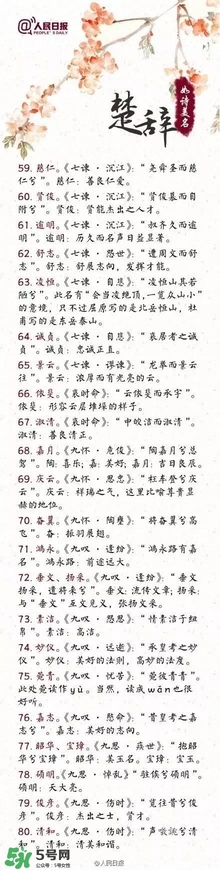 @人民日报
PEOPLE'S DAILY
如诗美名
楚辞
59. 慈仁。《七谏·沉江》:“尧舜圣而慈
仁兮”。慈仁:善良仁爱。
60. 贤俊。《七谏·沉江》:“贤俊慕而自
附兮”。贤俊:贤能杰出之人才。
61. 逾明。《七谏·沉江》:“叔齐久而逾
明”。逾明:历久而名声日益显著。
62. 舒志。《七谏·怨世》:“遭周文而舒
志”。舒志:舒展志向,发挥才能。
63. 凌恒。《七谏·自悲》:“凌恒山其若
陋兮”。此名有“会当凌绝顶,一览众山小”
的意境,只不过屈原写的是北岳恒山,杜
甫写的是东岳泰山。
64. 诚贞。《七谏·自悲》:“哀居者之诚
贞”。诚贞:忠诚正直。
65. 景云。《七谏·谬谏》:“龙举而景云
往”。景云:浓厚而有光亮的云。
66. 依斐。《哀时命》:“云依斐而承宇”。
依斐:形容云层堆垛的样子。
67. 淑清。《哀时命》:“中皎洁而淑清”。
淑清:善良清正。
68. 嘉月。《九怀·危俊》:“陶嘉月兮总
驾”。陶:喜乐;嘉:美好;嘉月:吉日良辰。
69. 庆云。《九怀·思忠》:“枉车登兮庆
云”。庆云:祥瑞之气,这里比喻尊贵显
赫的地位。
70. 奋翼。《九怀·陶壅》:“将奋翼兮高
飞”。奋:振羽展翅。
71. 鸿永。《九叹·逢纷》:“鸿永路有嘉
名”。鸿永路:前途远大。
72. 垂文、扬采。《九叹·逢纷》:“垂文
扬采,遗将来兮”。垂文:流传文章;扬采:
与“垂文”互文见义,张扬文采。
73. 素洁。《九叹·怨思》:“情素洁于纽
帛”。素洁:高洁。
74. 妙仪。《九叹·远逝》:“承皇考之妙
仪”。妙仪:美好的法则,高妙的法度。
75. 菀青。《九叹·忧苦》:“菀彼青青”。
此处菀读作yù。当然,读成wǎn也很
好听。
76. 嘉志。《九叹·愍命》:“昔皇考之嘉
志兮”。嘉志:美好的志向。
77. 昭华、宝璋。《九思·疾世》:“抱昭
华兮宝璋”。昭华:美玉名。宝璋:玉。
78. 硕明。《九思·悼乱》“跓俟兮硕明”。
硕明:天大亮。
79. 俊彦。《九思·伤时》:“览往昔兮俊
彦”。俊彦:杰出之士,贤才。
80. 清和。《九思·伤时》:“声噭誂兮清
和”。清和:清美和谐。
5号网
公众号:5号女性
@人民日报